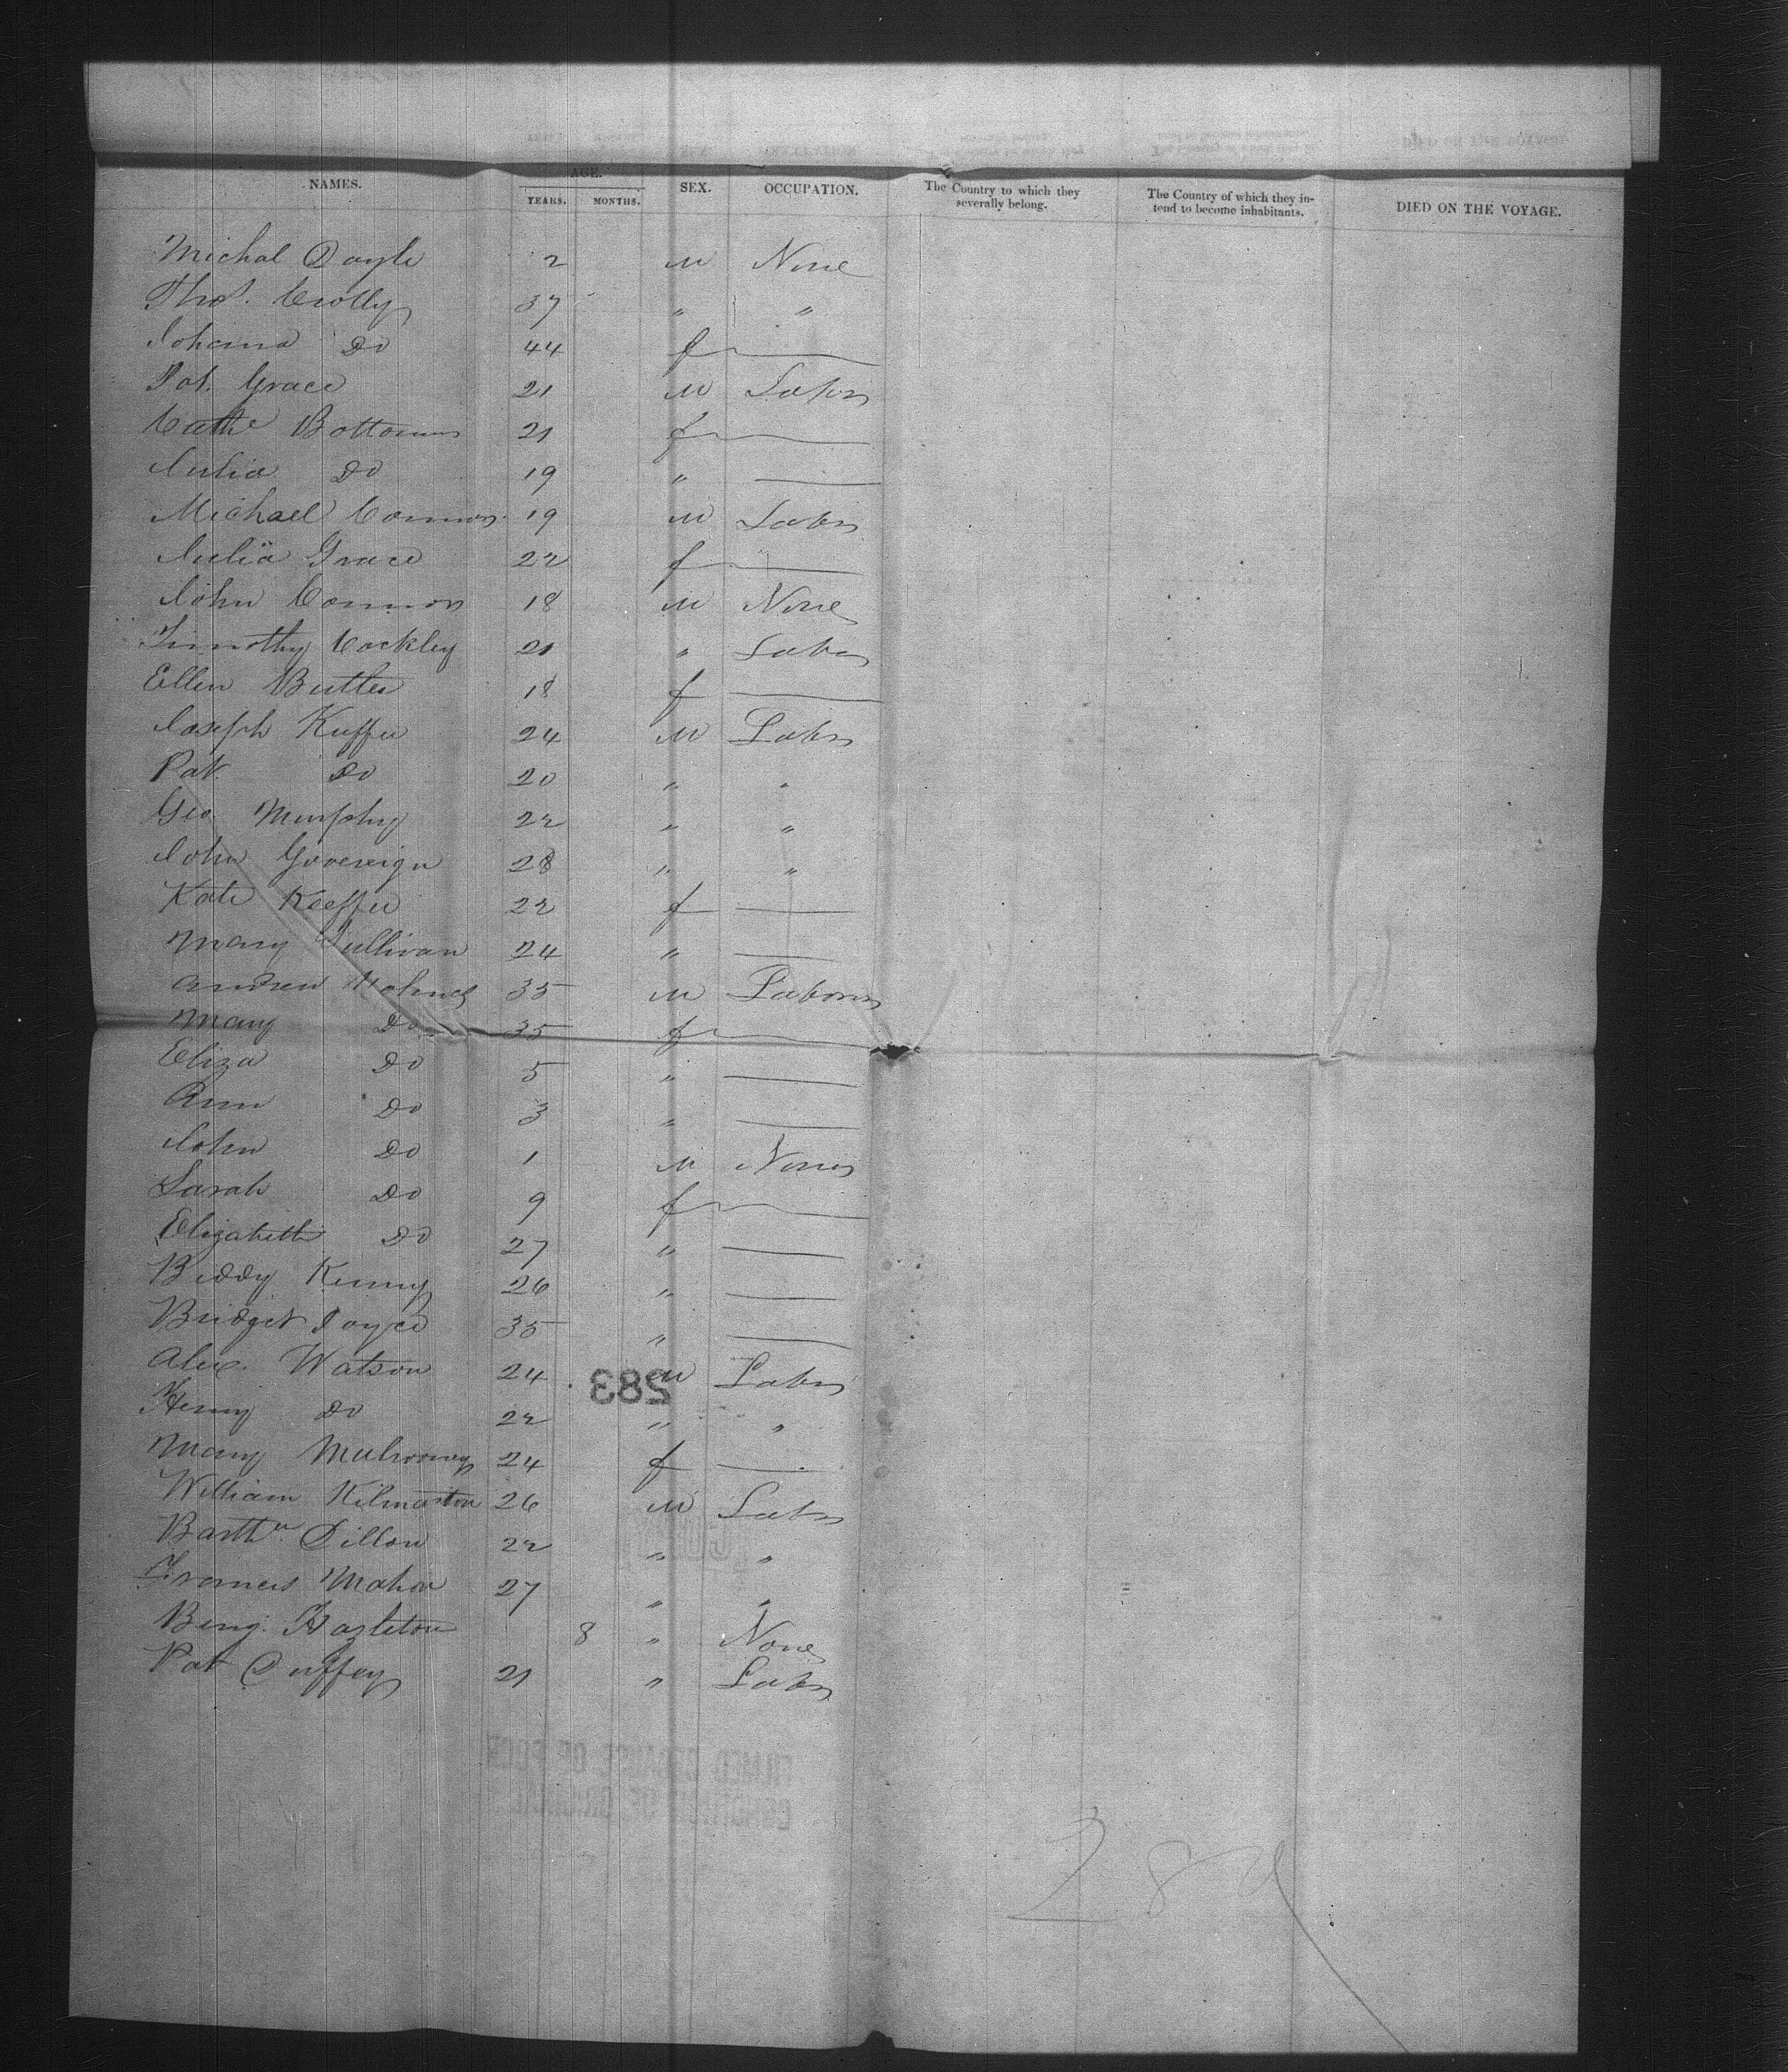 NAMES. AGE. SEX. OCCUPATION. The Country to which they severally belong. The Country of which they intend to become inhabitants. DIED ON THE VOYAGE.
YEARS. MONTHS.
Michal Doyle 2 M None
Thos. Crotty 37 " "
Johanna Do 44 f
Pat. Grace 21 M Labr
Cathe 21 f
Julia Do 19 "
Michael Connors 19 M Labr
Julia Grace 22 f
John Connors 18 M None
Timothy Cockley 21 " Labr
Ellen Butler 18 f
Joseph Keffer 24 M Labr
Pat. Do 20 " "
Geo Murphy 22 " "
John Govereign 28 " "
Kate Keeffee 22 f
Mary Sullivan 24 "
Andrew Holmes 35 M Laborer
Mary Do 35 f
Eliza Do 5 "
Ann Do 3 "
John Do 1 M None
Sarah Do 9 f
Elizabeth Do 27 "
Biddy Kenny 26 "
Bridget Joyce 35 "
Alex. Watson 24 M Labr
283
Henry Do 22 " "
Mary Mulrooney 24 f
William Kilmarton 26 M Labr
Barthw. Dillon 22 " "
Frances Mahon 27 " "
Benj. Hazleton 8 " None
Pat Duffey 21 " Labr
FILMED BECAUSE OF POOR
CONDITION OF ORIGINAL